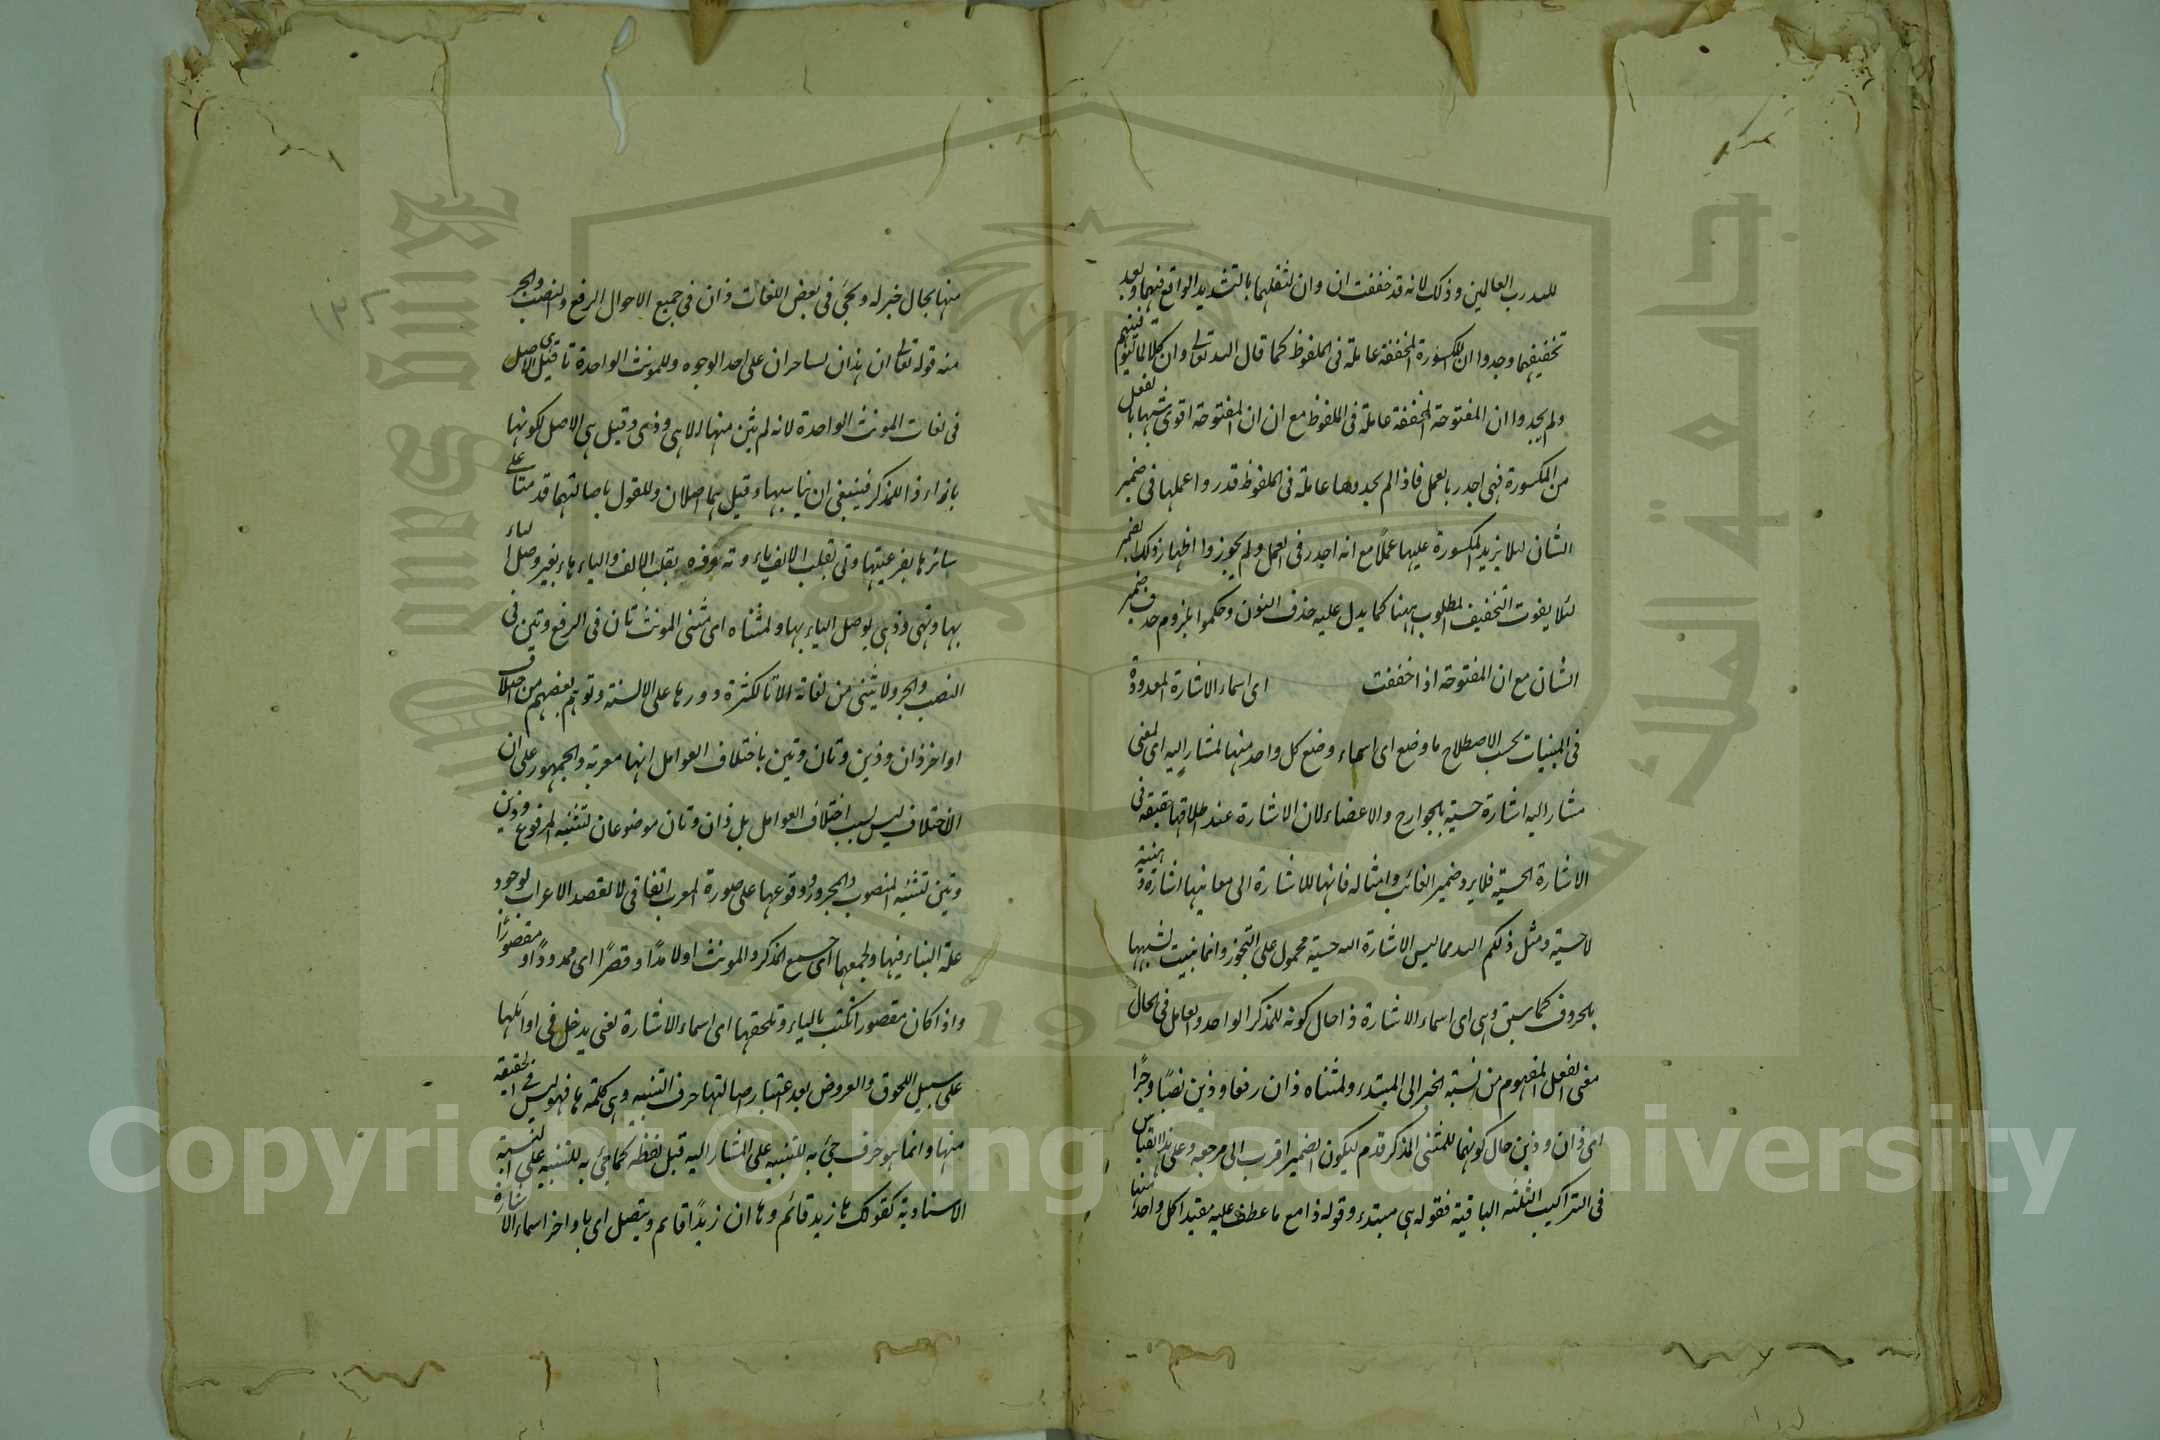 لله رب العالمين وذلك لانه قد خففت ان وان لثقلهما بالتشديد الواقع فيهما وبعد
تخفيفهما وجدوا ان المكسورة المخففة عاملة فى الملفوظ كما قال الله تعالى وان كلا لما ليوفينهم
ولم يجدوا ان المفتوحة المخففة عاملة فى الملفوظ مع ان ان المفتوحة اقوى شبها بالفعل
من المكسورة فهى اجدر بالعمل فاذا لم يجدوها عاملة فى الملفوظ قدروا عملها فى ضمير
الشان لئلا يزيد المكسورة عليها عملًا مع انه اجدر فى العمل ولم يجوزوا اظهار ذلك الضمير
لئلا يفوت التخفيف المطلوب ههنا كما يدل عليه حذف النون وحكموا بلزوم حذف ضمير
الشان مع ان المفتوحة اذا خففت اى اسماء الاشارة المعدودة
فى المبنيات بحسب الاصطلاح ما وضع اى اسماء وضع كل واحد منها لمشار اليه اى لمعنى
مشار اليه اشارة حسية بالجوارح والاعضاء لان الاشارة عند اطلاقها حقيقة فى
الاشارة الحسية فلا يرد ضمير الغائب وامثاله فانها للاشارة الى معانيها اشارة ذهنية
لا حسية ومثل ذلكم الله مما ليس الاشارة اليه حسية محمول على التجوز وانما بنيت لشبهها
بالحروف كما سبق وهى اى اسماء الاشارة ذا حال كونه للمذكر الواحد والعامل فى الحال
معنى الفعل المفهوم من نسبة الخبر الى المبتدء ولمثناه ذان رفعا وذين نصبًا وجرًا
اى ذان وذين حال كونهما للمثنى المذكر قدم ليكون الضمير اقرب الى مرجعه وعلى هذا القياس
فى التراكيب الثلثة الباقية فقوله هى مبتدء وقوله ذا مع ما عطف عليه مقيدا كل واحد منها
منها بحال خبر له ويجئ فى بعض اللغات ذان فى جميع الاحوال الرفع والنصب والجر
منه قوله تعالى ان هذان لساحران على احد الوجوه وللمونث الواحدة تا قيل هى الاصل
فى لغات المونث الواحدة لانه لم يثن منها الا هى وذى وقيل هى الاصل لكونها
بازاء ذا للمذكر فينبغى ان يناسبها وقيل هما اصلان وللقول باصالتهما قدمتا على
سائرها بفرعيتها وتى بقلب الالف ياء وته وذه بقلب الالف والياء هاء بغير وصل الياء
بها وتهى وذهى بوصل الياء بها ولمثناه اى مثنى المونث تان فى الرفع وتين فى
النصب والجر ولا يثنى من لغاته الا تا لكثرة دورها على الالسنة وتوهم بعضهم من اختلاف
اواخر ذان وذين وتان وتين باختلاف العوامل انها معربة والجمهور على ان
الاختلاف ليس بسبب اختلاف العوامل بل ذان وتان موضوعان لتثنية المرفوع وذين
وتين لتثنية المنصوب والمجرور ووقوعها على صورة المعرب اتفاقى لا لقصد الاعراب لوجود
علة البناء فيها ولجمعهما اى جميع المذكر والمونث اولا مدًا وقصرًا اى ممدودًا او مقصورًا
واذا كان مقصورا كتب بالياء وتلحقها اى اسماء الاشارة يعنى يدخل فى اوائلها
على سبيل اللحوق والعروض بعد اعتبار اصالتها حرف التنبيه وهى كلمة ها فهو ليس فى الحقيقة
منها وانما هو حرف جئ به للتنبيه على المشار اليه قبل لفظه كما جئ به للتنبيه على النسبة
الاسنادية كقولك ها زيد قائم وها ان زيدًا قائم ويتصل اى باواخر اسماء الاشارة